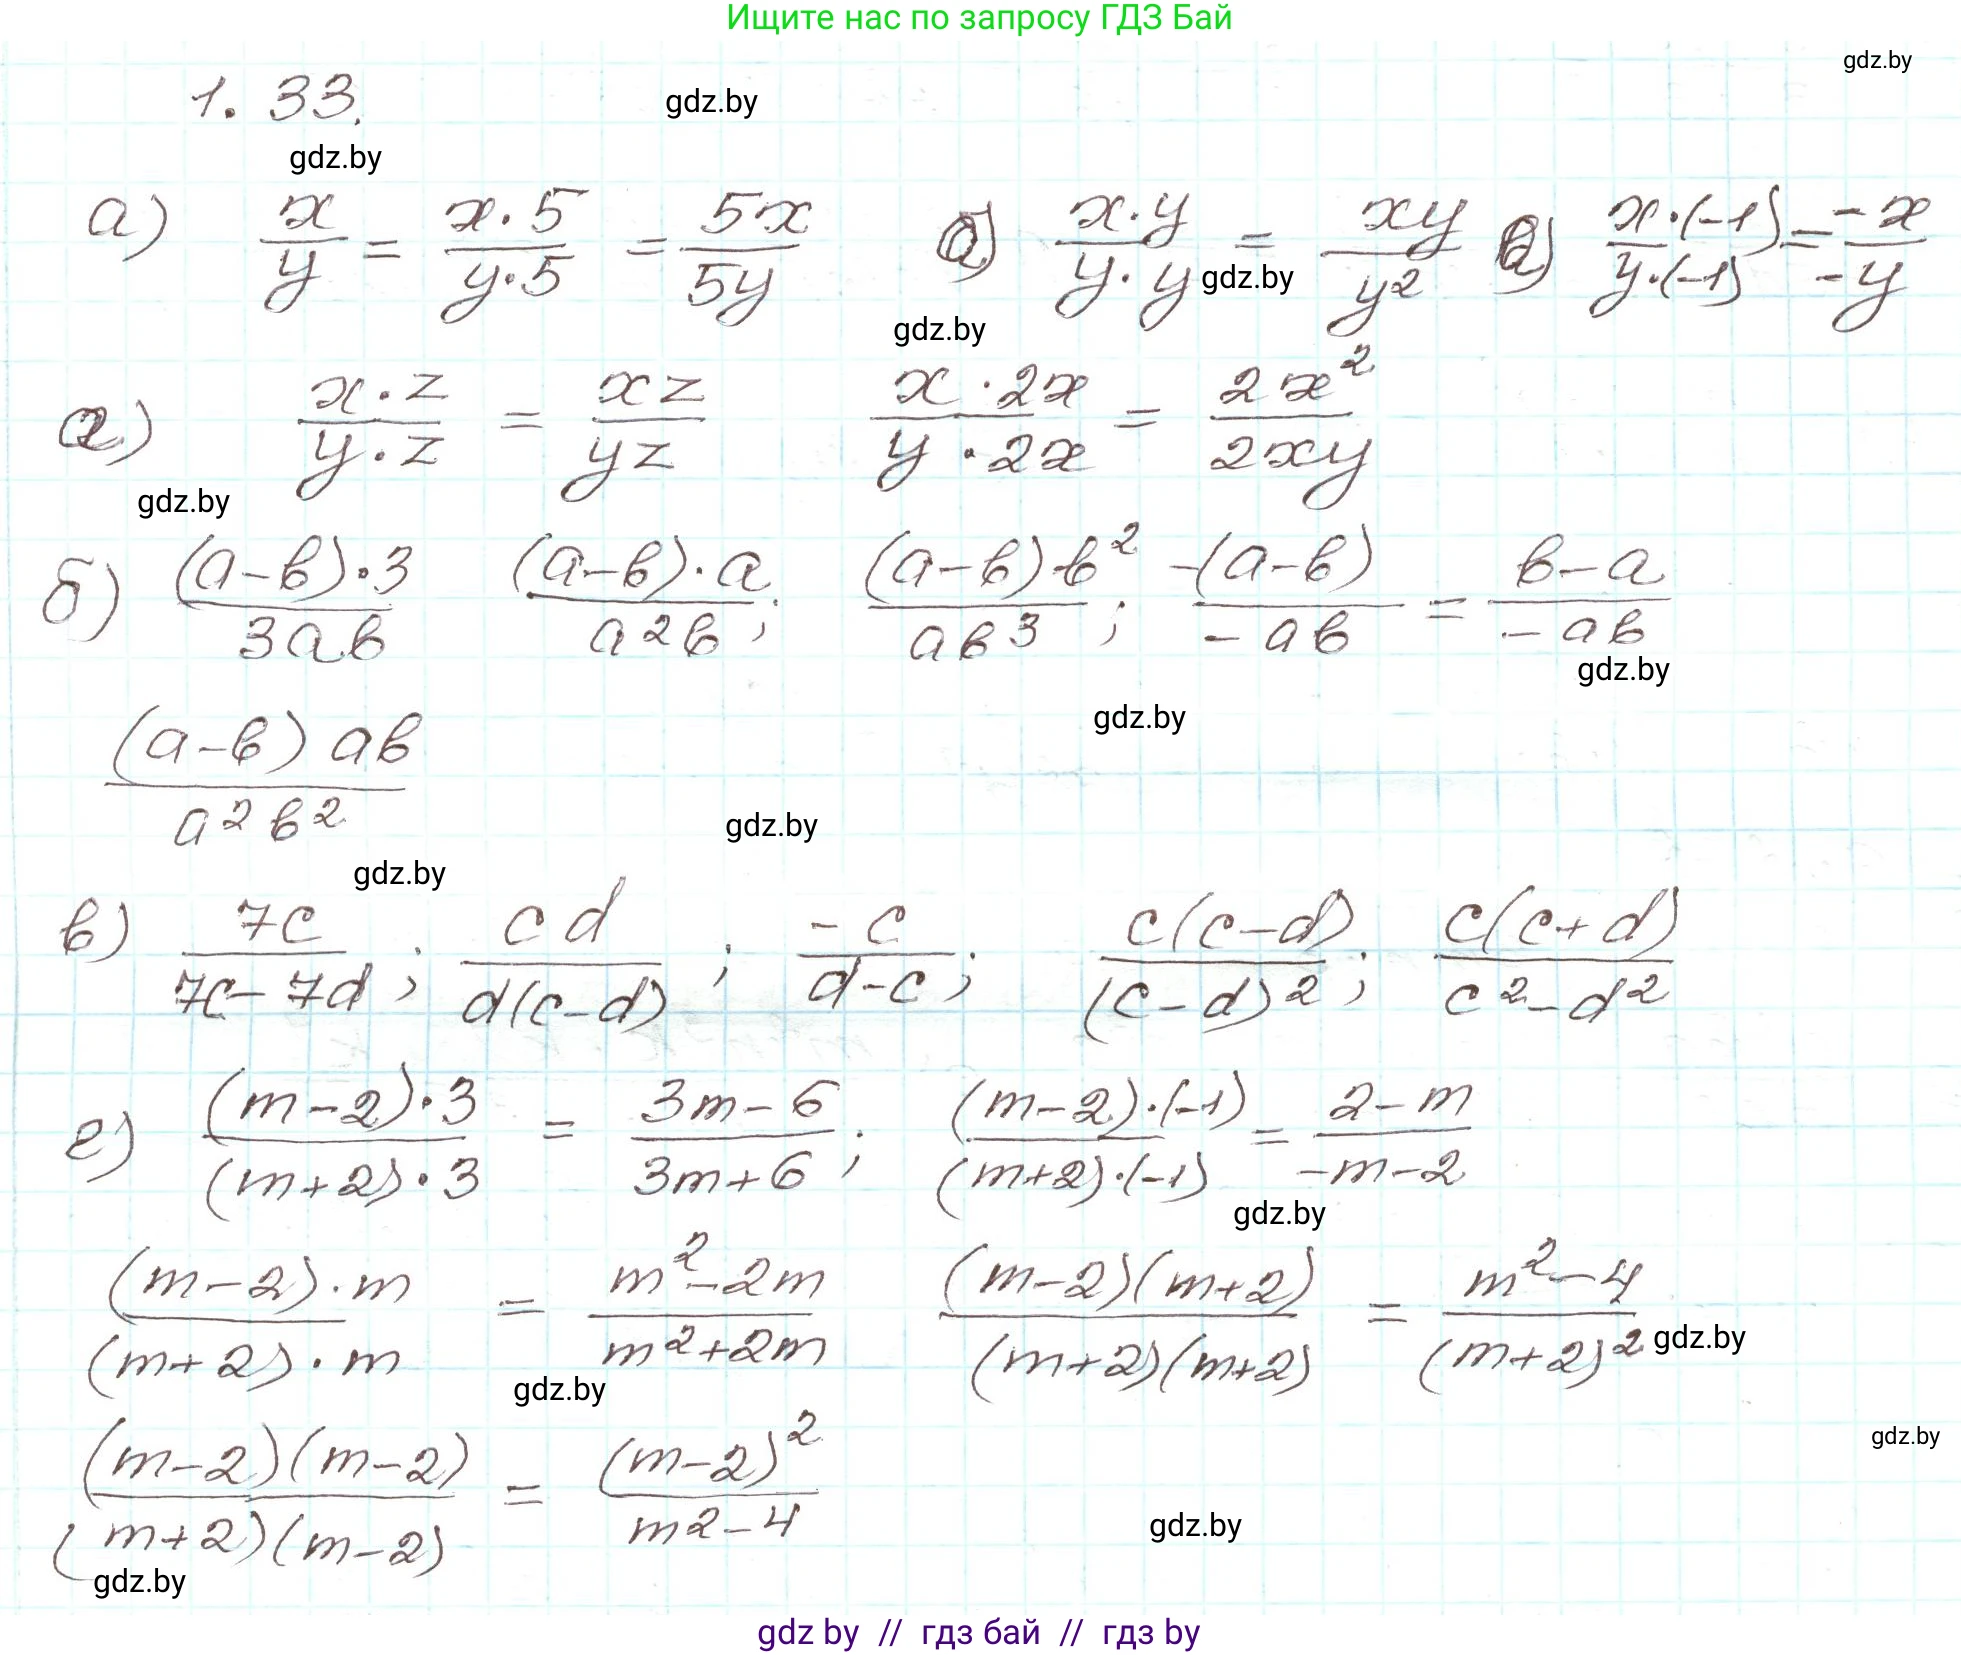 Ищите нас по запросу ГДЗ Бай
gdz.by
1. 33.
gdz.by
gdz.by
а) x/y = x·5/y·5 = 5x/5y б) x·y/y·y = xy/y² в) x·(-1)/y·(-1) = -x/-y
gdz.by
gdz.by
г) x·z/y·z = xz/yz x·2x/y·2x = 2x²/2xy
gdz.by
б) (a-b)·3/3ab (a-b)·a/a²b; (a-b)b²/ab³; -(a-b)/-ab = b-a/-ab
gdz.by
gdz.by
(a-b)ab/a²b²
gdz.by
gdz.by
в) 7c/7c-7d; cd/d(c-d); -c/d-c; c(c-d)/(c-d)²; c(c+d)/c²-d²
г) (m-2)·3/(m+2)·3 = 3m-6/3m+6; (m-2)·(-1)/(m+2)·(-1) = 2-m/-m-2
gdz.by
(m-2)·m/(m+2)·m = m²-2m/m²+2m (m-2)(m+2)/(m+2)(m+2) = m²-4/(m+2)²
gdz.by
gdz.by
gdz.by
(m-2)(m-2)/(m+2)(m-2) = (m-2)²/m²-4
gdz.by
gdz.by
gdz by // гдз бай // гдз by